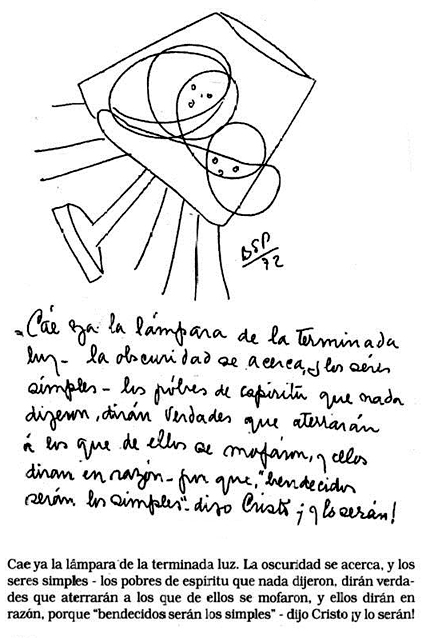 BSP
72
"Cáe ya la lámpara de la terminada
luz - la obscuridad se acerca, y los séres
símples - los póbres de espíritu que nada
dijeron, dirán verdades que aterrarán
á los que de ellos se mofáron, y ellos
diran en razón - por que, "bendecidos
serán los simples" - dijo Cristo ¡y lo serán!
Cae ya la lámpara de la terminada luz. La oscuridad se acerca, y los
seres simples - los pobres de espíritu que nada dijeron, dirán verda-
des que aterrarán a los que de ellos se mofaron, y ellos dirán en
razón, porque "bendecidos serán los simples" - dijo Cristo ¡y lo serán!